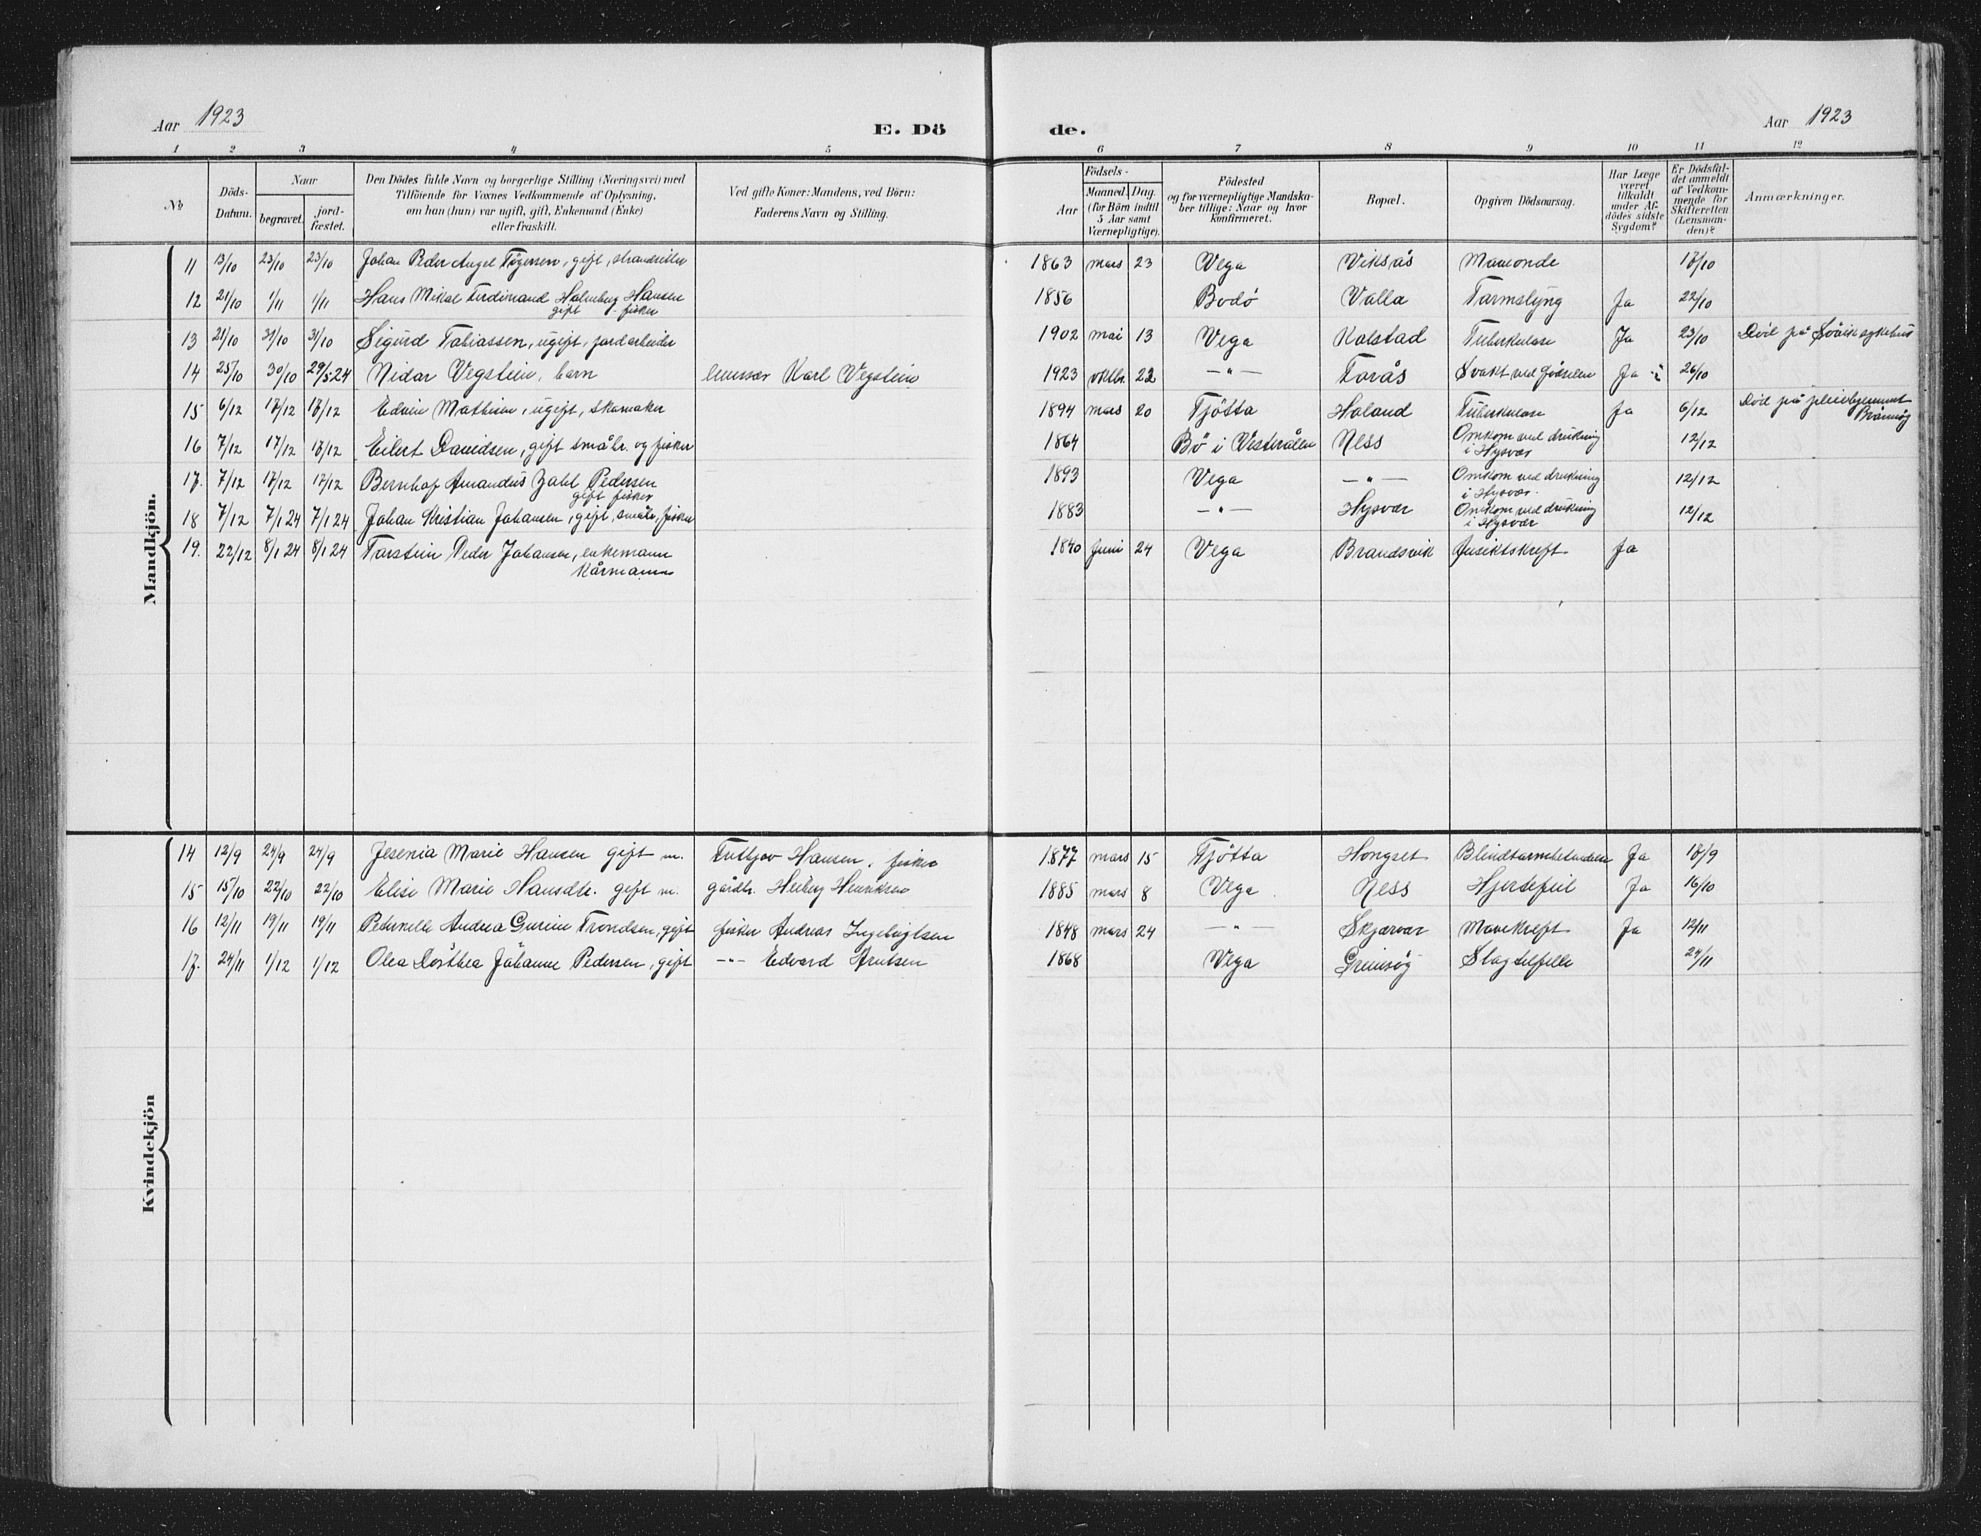 Aar 1923
E. Dö
de.
Aar 1923
1 2 3 4 5 6 7 8 9 10 11 12
No
Döds-Datum.
Naar
begravet.
jord-fæstet.
Den Dödes fulde Navn og borgerlige Stilling (Næringsvei) med
Tilföiende for Voxnes Vedkommende af Oplysning,
om han (hun) var ugift, gift, Enkemand (Enke)
eller fraskilt.
Ved gifte Koner: Mandens, ved Börn:
Faderens Navn og Stilling.
Födsels-
Aar
Maaned. Dag.
(for Börn indtil
5 Aar samt
Værnepligtige).
Födested
og for værnepligtige Mandska-
ber tillige: Naar og hvor
konfirmeret.
Bopæl.
Opgiven Dödsaarsag.
Har Læge
været
tilkaldt
under Af-
dödes sidste
Sygdom?
Er Dödsfal-
det anmeldt
af Vedkom-
mende for
Skifteretten
(Lensman-
den)?
Anmærkninger.
Mandkjön.
11 13/10 23/10 23/10 Johan Peder Angel Tøgersen, gift, strandsitter 1863 mars 23 Vega Viksås Maveonde 17/10
12 21/10 1/11 1/11 Hans Mikal Ferdinand Holmberg Hansen 1856 Bodø Valla Tarmslyng Ja 22/10
gift fisker
13 21/10 31/10 31/10 Sigurd Tobiassen, ugift, jordarbeider 1902 mai 13 Vega Kolstad Tuberkulose Ja 23/10 Død på Søvik sykehus
14 25/10 30/10 29/5 24 Nidar Vegstein, barn Karl Vegstein 1923 oktbr. 22 -"- Forås Svakt ved fødselen Ja 26/10
15 6/12 17/12 17/12 Edvin Mathisen, ugift, skomaker 1894 mars 20 Tjøtta Holand Tuberkulose Ja 6/12 Død på pleiehjemmet
Brønnøy
16 7/12 17/12 17/12 Eilert Davidsen, gift småbr. og fisker 1864 Bö i Vesterålen Ness Omkom ved drukning 12/12
i Hysvær
17. 7/12 17/12 17/12 Bernhof Amandus Zahl Pedersen 1893 Vega -"- Omkom ved drukning 12/12
gift fisker i Hysvær.
18 7/12 7/1 24 7/1 24 Johan Kristian Johansen, gift, småbr, fisker 1883 -"- Hysvær Omkom ved drukning 12/12
i Hysvær
19. 22/12 8/1 24 8/1 24 Torstein Peder Johansen, enkemann 1840 Juni 24 Vega Brandsvik Ansiktskreft Ja
kårmann
Kvindekjön
14 12/9 24/9 24/9 Jesenia Marie Hansen gift m. Fritjov Hansen, fisker 1877 mars 15 Tjøtta Hongset Blindtarmbetendelse Ja 18/9
15 15/10 22/10 22/10 Elise Marie Hansdtr. gift m. gårdbr. Heiberg Henriksen 1885 mars 8 Vega Ness Hjertefeil Ja 16/10
16 12/11 19/11 19/11 Petrnelle Andrea Gurine Trondsen, gift fisker Andreas Ingebrigtsen 1848 mars 24 -"- Skjærvær Mavekreft Ja 12/11
17. 24/11 1/12 1/12 Olea Dorthea Johanne Pedersen, gift -"- Edvard Arntsen 1868 Vega Grimsøy Slagtilfelle 24/11